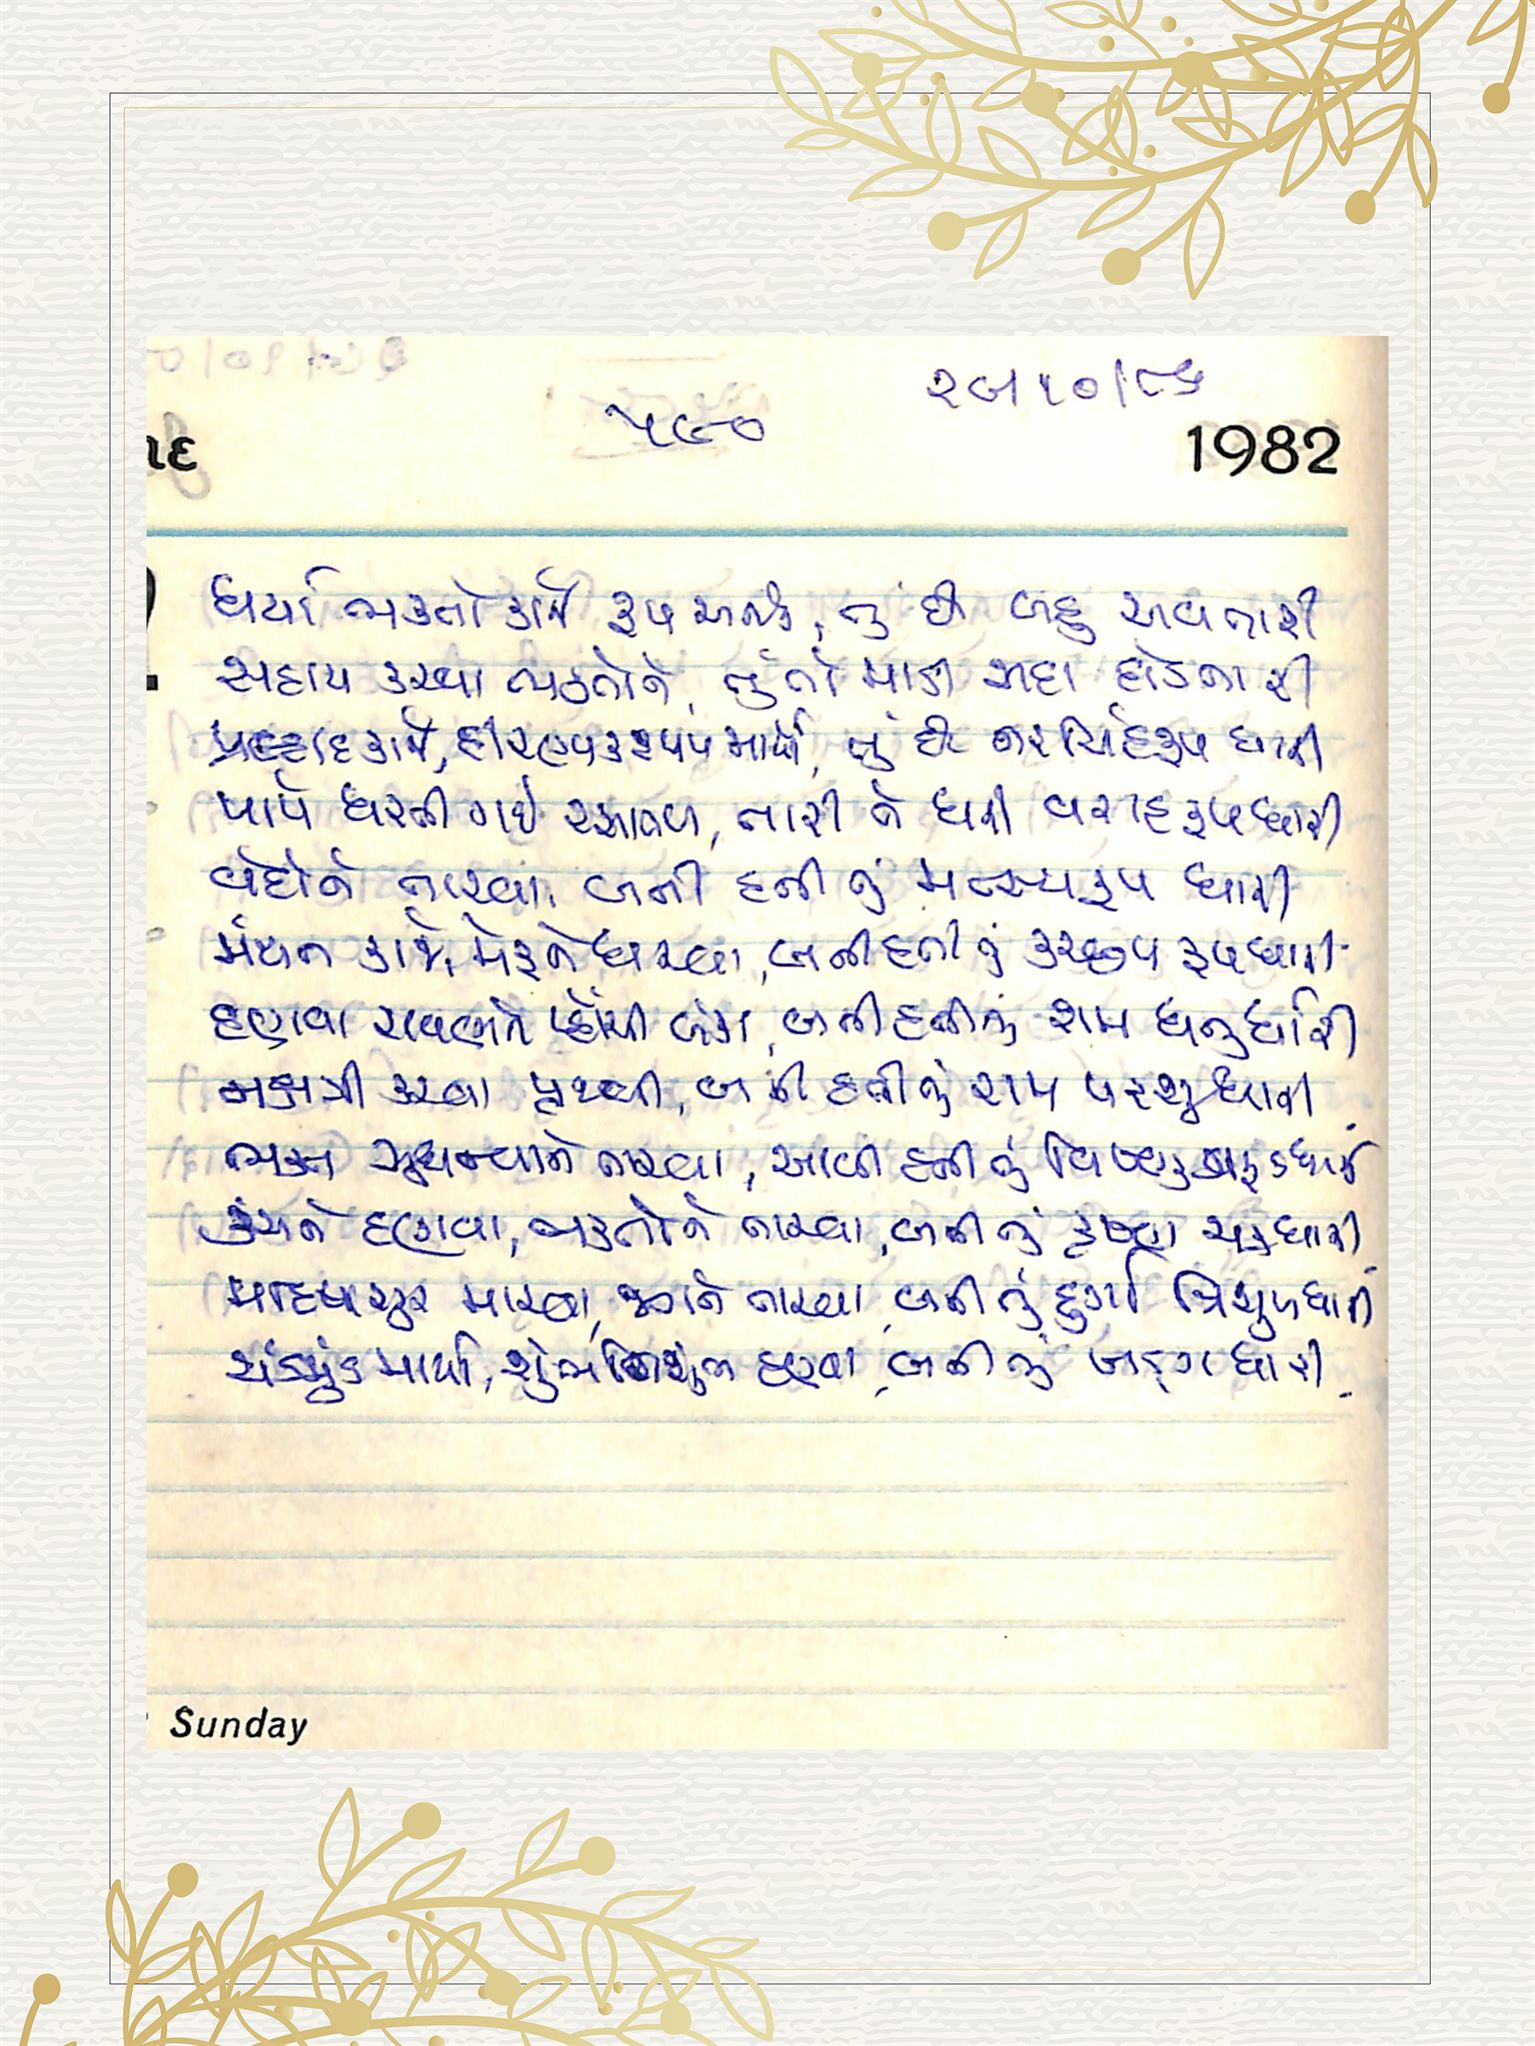 ૨૯/૧૦/૮૬
૫૯૦
1982
ધર્યા ભક્તો કાજે રૂપ અનેક, તું છે બહુ અવતારી
સહાય કરવા ભક્તોને, તું તો માડી સદા દોડનારી
પ્રહ્લાદ કાજે, હીરણ્યકશ્યપ માર્યો, તું છે નરસિંહરૂપ ધારી
પાપે ધરતી ગઈ રસાતળ, તારી તે ધરી વરાહરૂપધારી
વેદોને તારવા, બની હતી તું મત્સ્યરૂપ ધારી
મંથન કાજે, મેરૂને ધરવા, બની હતી તું કચ્છપ રૂપધારી
હણવા રાવણને પ્હોંચી લંકા, બની હતી તું રામ ધનુર્ધારી
નક્ષત્રી કરવા પૃથ્વી, બની હતી તું રામ પરશુધારી
ભક્ત સુધન્વાને તારવા, આવી હતી તું વિષ્ણુ ગરૂડધારી
કંસને હણવા, ભક્તોને તારવા, બની તું કૃષ્ણ ચક્રધારી
મહિષાસુર મારવા, જગને તારવા, બની તું દુર્ગા ત્રિશુળધારી
ચંડમુંડ માર્યા, શુંભ નિશુંભ હણવા, બની તું ખડ્ગધારી
Sunday